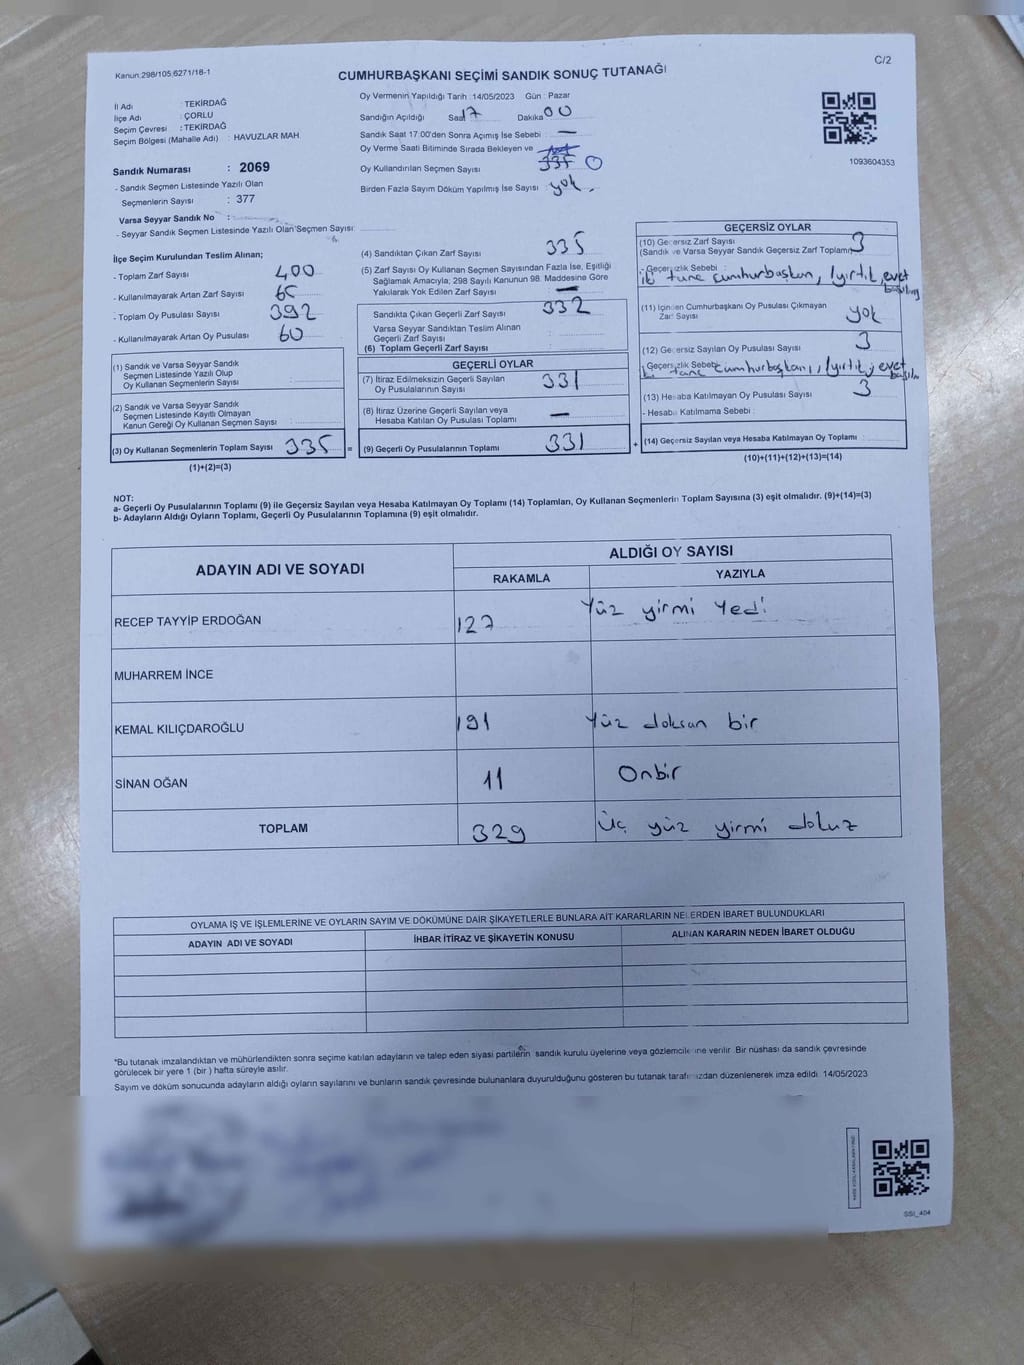 Kanun:298/105;6271/18-1
C/2
CUMHURBAŞKANI SEÇİMİ SANDIK SONUÇ TUTANAĞI
İl Adı : TEKİRDAĞ
İlçe Adı : ÇORLU
Seçim Çevresi : TEKİRDAĞ
Seçim Bölgesi (Mahalle Adı) : HAVUZLAR MAH.
Sandık Numarası : 2069
- Sandık Seçmen Listesinde Yazılı Olan
Seçmenlerin Sayısı : 377
Varsa Seyyar Sandık No :
- Seyyar Sandık Seçmen Listesinde Yazılı Olan Seçmen Sayısı:
Oy Vermenin Yapıldığı Tarih :14/05/2023 Gün : Pazar
Sandığın Açıldığı Saat 17 Dakika 00
Sandık Saat 17:00'den Sonra Açımış İse Sebebi : —
Oy Verme Saati Bitiminde Sırada Bekleyen ve
Oy Kullandırılan Seçmen Sayısı 335 0
Birden Fazla Sayım Döküm Yapılmış İse Sayısı yok.
1093604353
İlçe Seçim Kurulundan Teslim Alınan;
- Toplam Zarf Sayısı : 400
- Kullanılmayarak Artan Zarf Sayısı : 65
- Toplam Oy Pusulası Sayısı : 392
- Kullanılmayarak Artan Oy Pusulası : 60
(1) Sandık ve Varsa Seyyar Sandık
Seçmen Listesinde Yazılı Olup
Oy Kullanan Seçmenlerin Sayısı :
(2) Sandık ve Varsa Seyyar Sandık
Seçmen Listesinde Kayıtlı Olmayan
Kanun Gereği Oy Kullanan Seçmen Sayısı :
(3) Oy Kullanan Seçmenlerin Toplam Sayısı 335 =
(1)+(2)=(3)
(4) Sandıktan Çıkan Zarf Sayısı 335
(5) Zarf Sayısı Oy Kullanan Seçmen Sayısından Fazla İse, Eşitliği
Sağlamak Amacıyla, 298 Sayılı Kanunun 98. Maddesine Göre
Yakılarak Yok Edilen Zarf Sayısı : —
Sandıkta Çıkan Geçerli Zarf Sayısı : 332
Varsa Seyyar Sandıktan Teslim Alınan
Geçerli Zarf Sayısı :
(6) Toplam Geçerli Zarf Sayısı :
GEÇERLİ OYLAR
(7) İtiraz Edilmeksizin Geçerli Sayılan
Oy Pusulalarının Sayısı : 331
(8) İtiraz Üzerine Geçerli Sayılan veya
Hesaba Katılan Oy Pusulası Toplamı : —
(9) Geçerli Oy Pusulalarının Toplamı : 331 +
GEÇERSİZ OYLAR
(10) Geçersiz Zarf Sayısı
(Sandık ve Varsa Seyyar Sandık Geçersiz Zarf Toplamı) 3
- Geçersizlik Sebebi :
iki tane cumhurbaşkan, 1 yırtık, evet
basılmış
(11) İçinden Cumhurbaşkanı Oy Pusulası Çıkmayan
Zarf Sayısı : yok
(12) Geçersiz Sayılan Oy Pusulası Sayısı : 3
- Geçersizlik Sebebi : tane cumhurbaşkanı, 1 yırtık, evet
(13) Hesaba Katılmayan Oy Pusulası Sayısı : 3
- Hesaba Katılmama Sebebi :
(14) Geçersiz Sayılan veya Hesaba Katılmayan Oy Toplamı :
(10)+(11)+(12)+(13)=(14)
NOT:
a- Geçerli Oy Pusulalarının Toplamı (9) ile Geçersiz Sayılan veya Hesaba Katılmayan Oy Toplamı (14) Toplamları, Oy Kullanan Seçmenlerin Toplam Sayısına (3) eşit olmalıdır. (9)+(14)=(3)
b- Adayların Aldığı Oyların Toplamı, Geçerli Oy Pusulalarının Toplamına (9) eşit olmalıdır.
ADAYIN ADI VE SOYADI
ALDIĞI OY SAYISI
RAKAMLA YAZIYLA
RECEP TAYYİP ERDOĞAN 127 Yüz yirmi Yedi
MUHARREM İNCE
KEMAL KILIÇDAROĞLU 191 Yüz doksan bir
SİNAN OĞAN 11 Onbir
TOPLAM 329 üç yüz yirmi dokuz
OYLAMA İŞ VE İŞLEMLERİNE VE OYLARIN SAYIM VE DÖKÜMÜNE DAİR ŞİKAYETLERLE BUNLARA AİT KARARLARIN NELERDEN İBARET BULUNDUKLARI
ADAYIN ADI VE SOYADI İHBAR İTİRAZ VE ŞİKAYETİN KONUSU ALINAN KARARIN NEDEN İBARET OLDUĞU
*Bu tutanak imzalandıktan ve mühürlendikten sonra seçime katılan adayların ve talep eden siyasi partilerin sandık kurulu üyelerine veya gözlemcilerine verilir. Bir nüshası da sandık çevresinde
görülecek bir yere 1 (bir) hafta süreyle asılır.
Sayım ve döküm sonucunda adayların aldığı oyların sayılarını ve bunların sandık çevresinde bulunanlara duyurulduğunu gösteren bu tutanak tarafımızdan düzenlenerek imza edildi. 14/05/2023
SSI_404